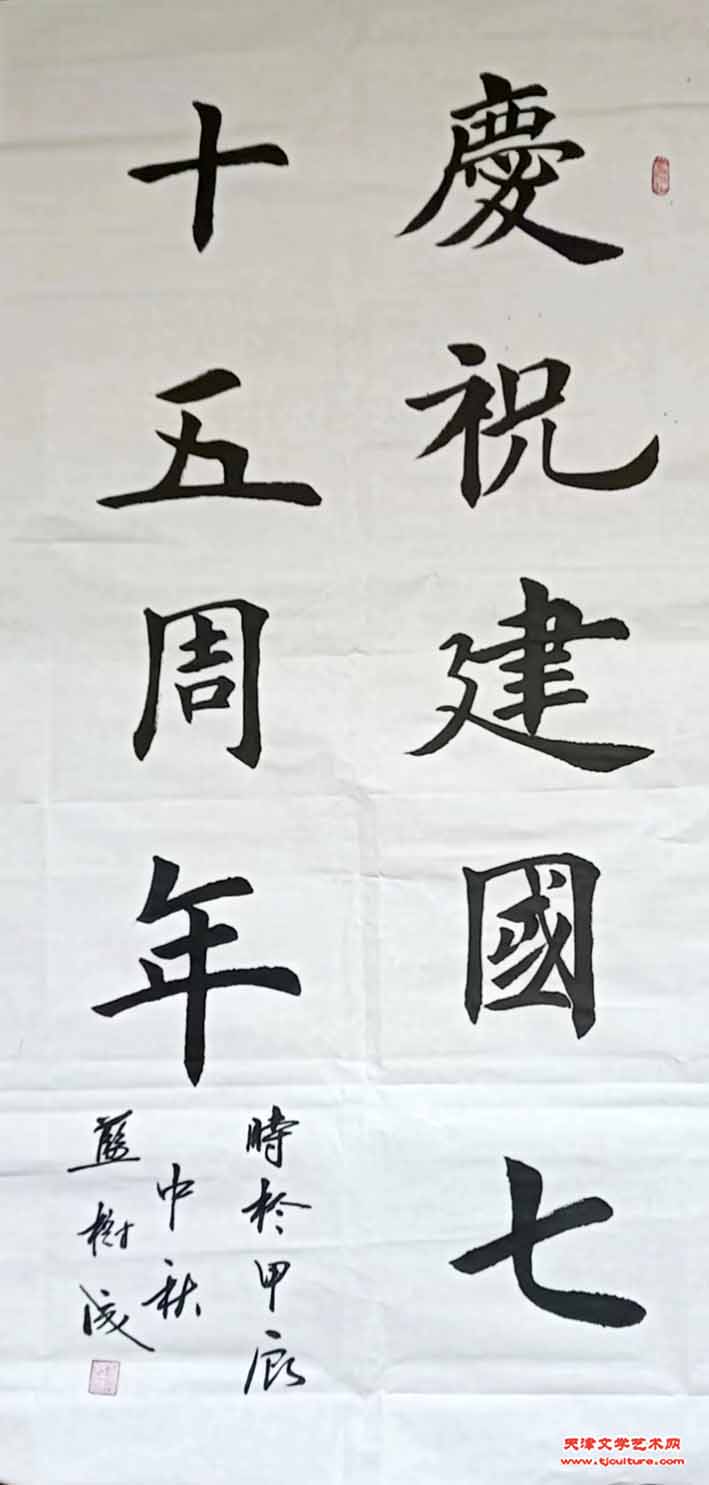 慶祝建國七
十五周年
時於甲辰
中秋
藍樹成
天津文学艺术网
www.tjculture.com